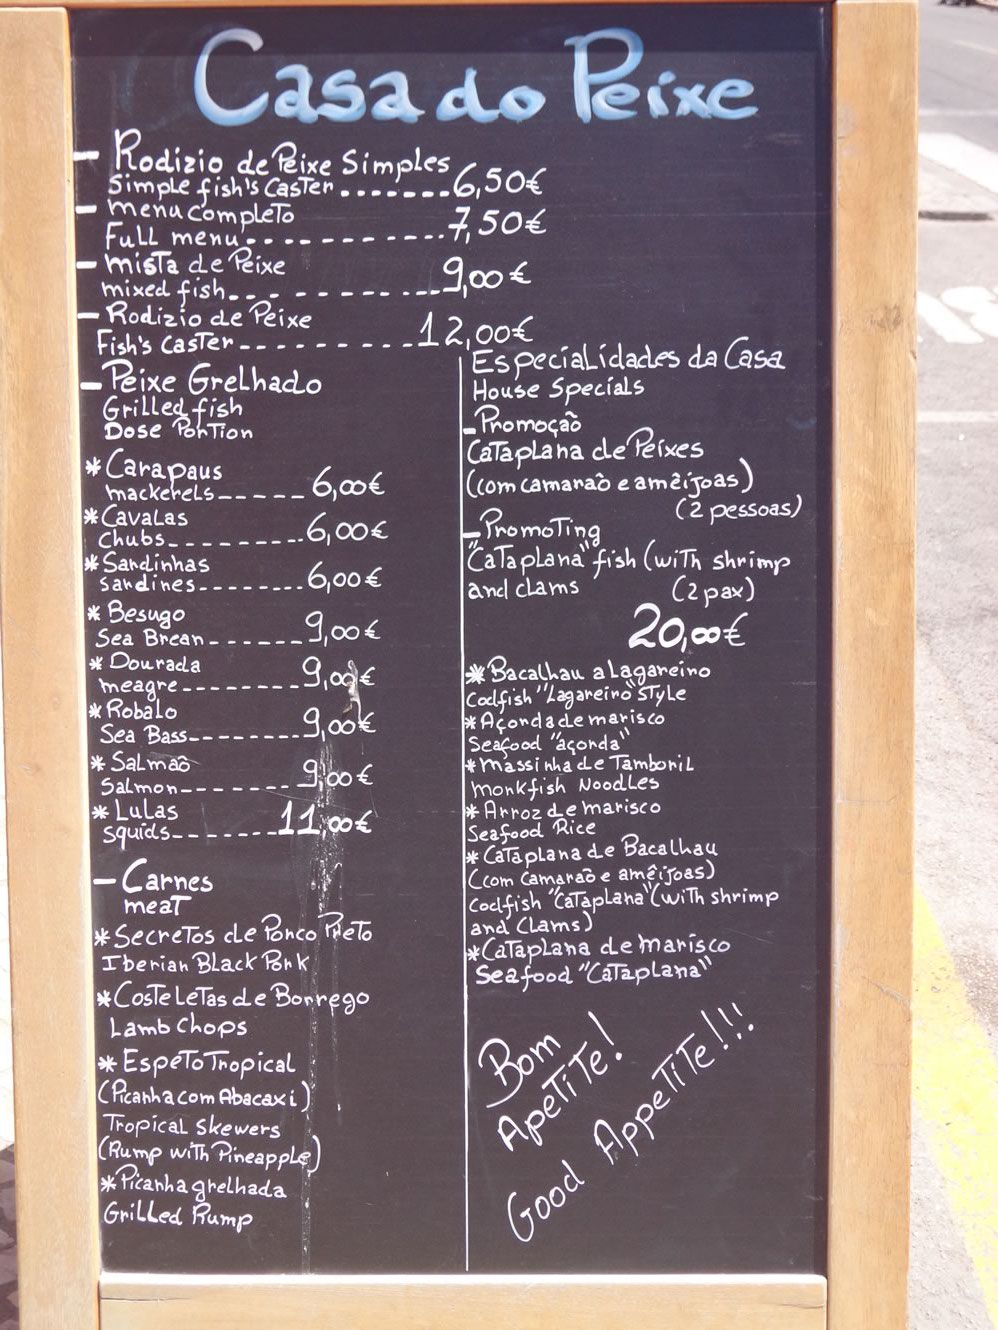 Casa do Peixe
- Rodizio de Peixe Simples
Simple fish's Caster.......6,50€
- menu completo
Full menu...........7,50€
- mista de Peixe
mixed fish...........9,00€
- Rodizio de Peixe
Fish's Caster..........12,00€
- Peixe Grelhado
Grilled fish
Dose Portion
* Carapaus
mackerels-----6,00€
* Cavalas
chubs---------6,00€
* Sardinhas
sardines-------6,00€
* Besugo
Sea Brean-------9,00€
* Dourada
meagre--------9,00€
* Robalo
Sea Bass-------9,00€
* Salmaõ
Salmon--------9,00€
* Lulas
squids-------11,00€
- Carnes
meat
* Secretos de Porco Preto
Iberian Black Pork
* Costeletas de Borrego
Lamb Chops
* Espeto Tropical
(Picanha com Abacaxi)
Tropical skewers
(Rump with Pineapple)
* Picanha grelhada
Grilled Rump
Especialidades da Casa
House Specials
- Promoção
Cataplana de Peixes
(com camaraõ e amêijoas)
(2 pessoas)
- Promoting
"Cataplana" fish (with shrimp
and clams (2 pax)
20,00€
* Bacalhau a Lagareiro
Codfish "Lagareiro" style
* Açorda de marisco
Seafood "açorda"
* massinha de Tamboril
monkfish Noodles
* Arroz de marisco
Seafood Rice
* Cataplana de Bacalhau
(com Camaraõ e amêijoas)
Codfish "Cataplana" (with shrimp
and Clams)
* Cataplana de marisco
Seafood "Cataplana"
Bom
Apetite!
Good Appetite!!!